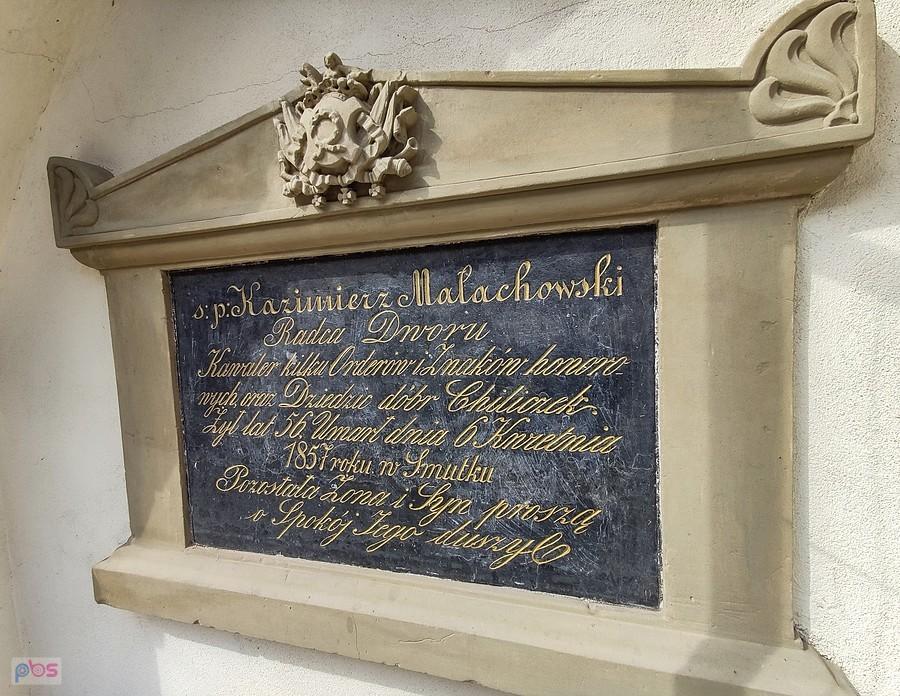 ś: p: Kazimierz Małachowski
Radca Dworu
Kawaler kilku Orderów i Znaków honoro-
wych, oraz Dziedzic dóbr Chiliczek.
Żył lat 56. Umarł dnia 6 Kwietnia
1857 roku w Smutku
Pozostała Żona i Syn proszą
o Spokój Jego duszy
pbs